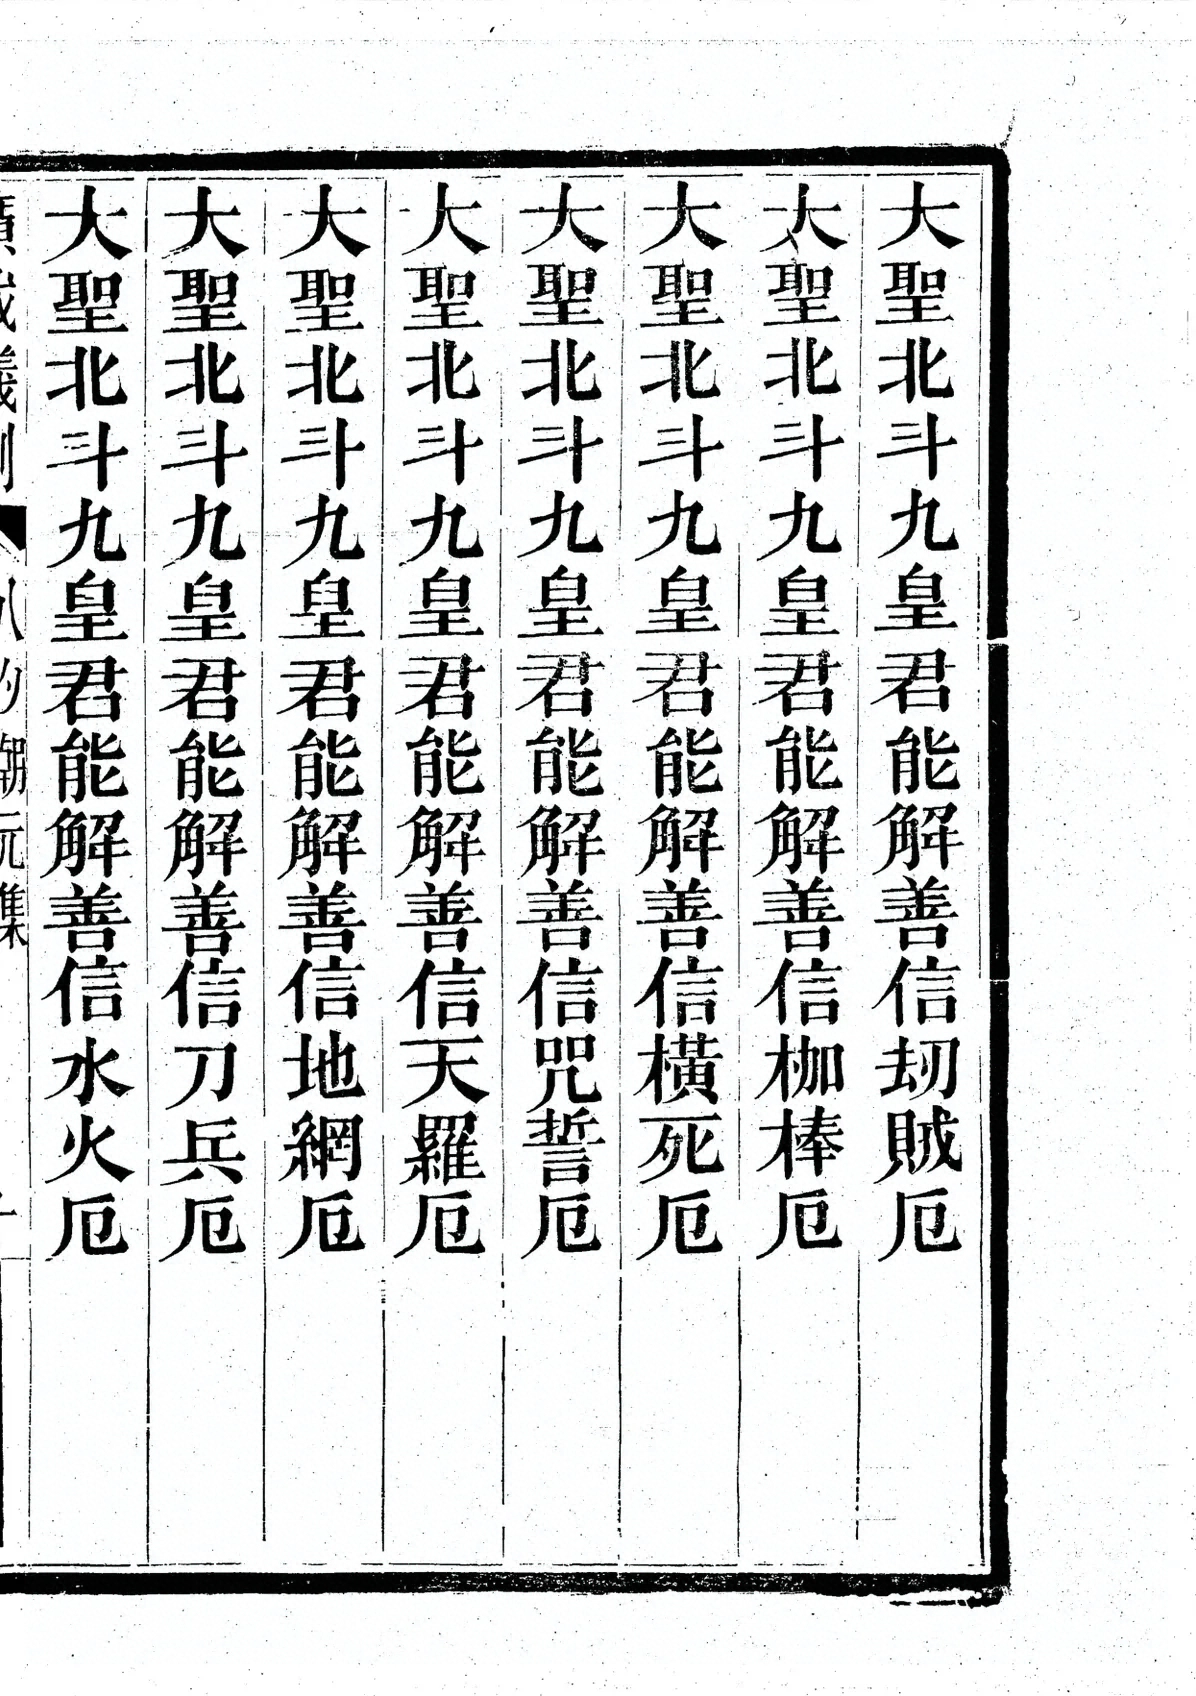 大聖北斗九皇君能解善信刼賊厄
大聖北斗九皇君能解善信枷棒厄
大聖北斗九皇君能解善信橫死厄
大聖北斗九皇君能解善信咒誓厄
大聖北斗九皇君能解善信天羅厄
大聖北斗九皇君能解善信地網厄
大聖北斗九皇君能解善信刀兵厄
大聖北斗九皇君能解善信水火厄